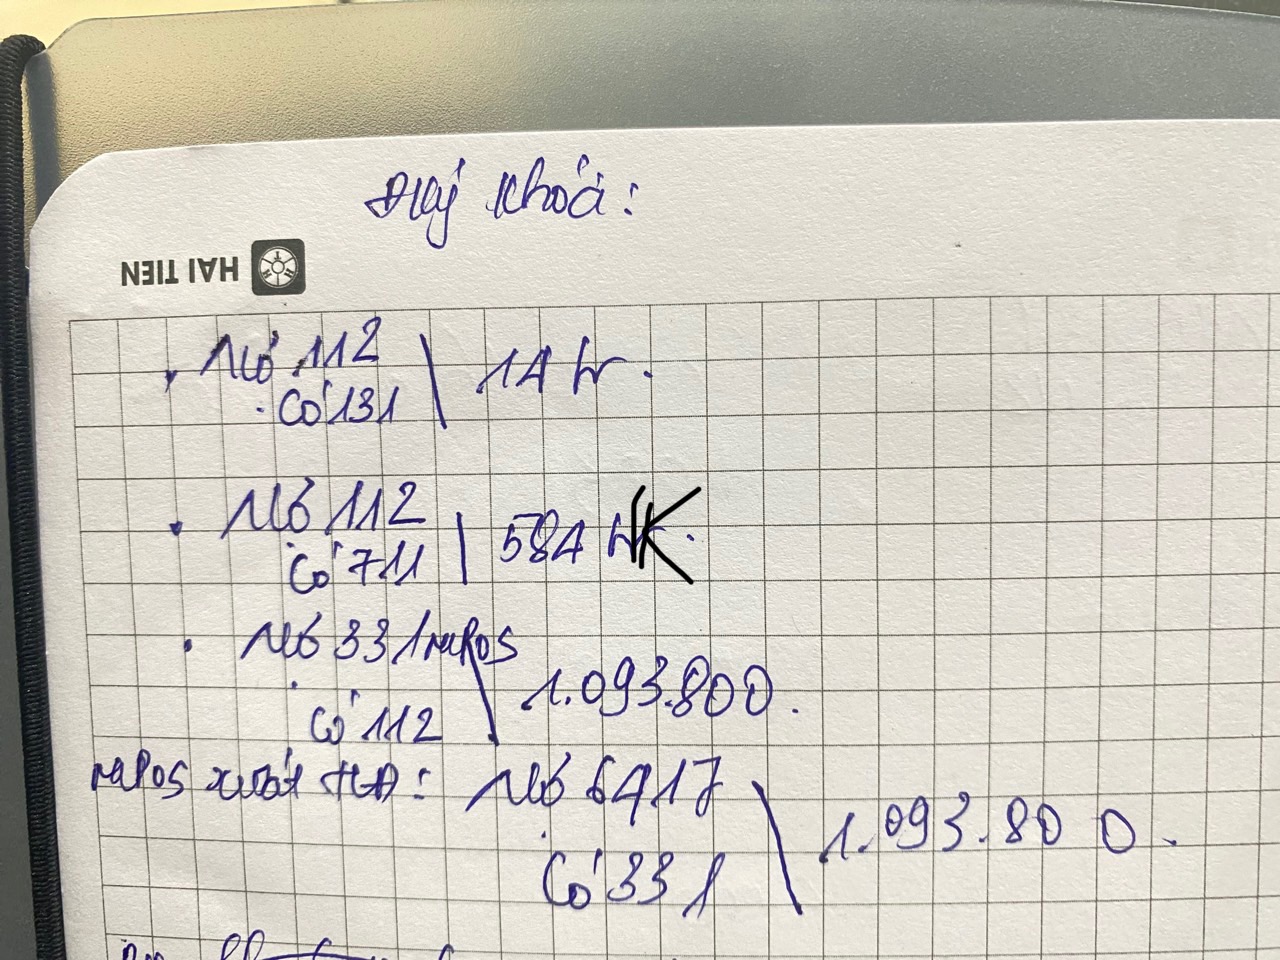 HAI TIEN
Nợ 112
Có 131
14 tr.
Nợ 112
Có 711
584 K.
Nợ 331 mPos
Có 112
1.093.800.
mPos xuất HĐ: Nợ 6417
Có 331
1.093.800.